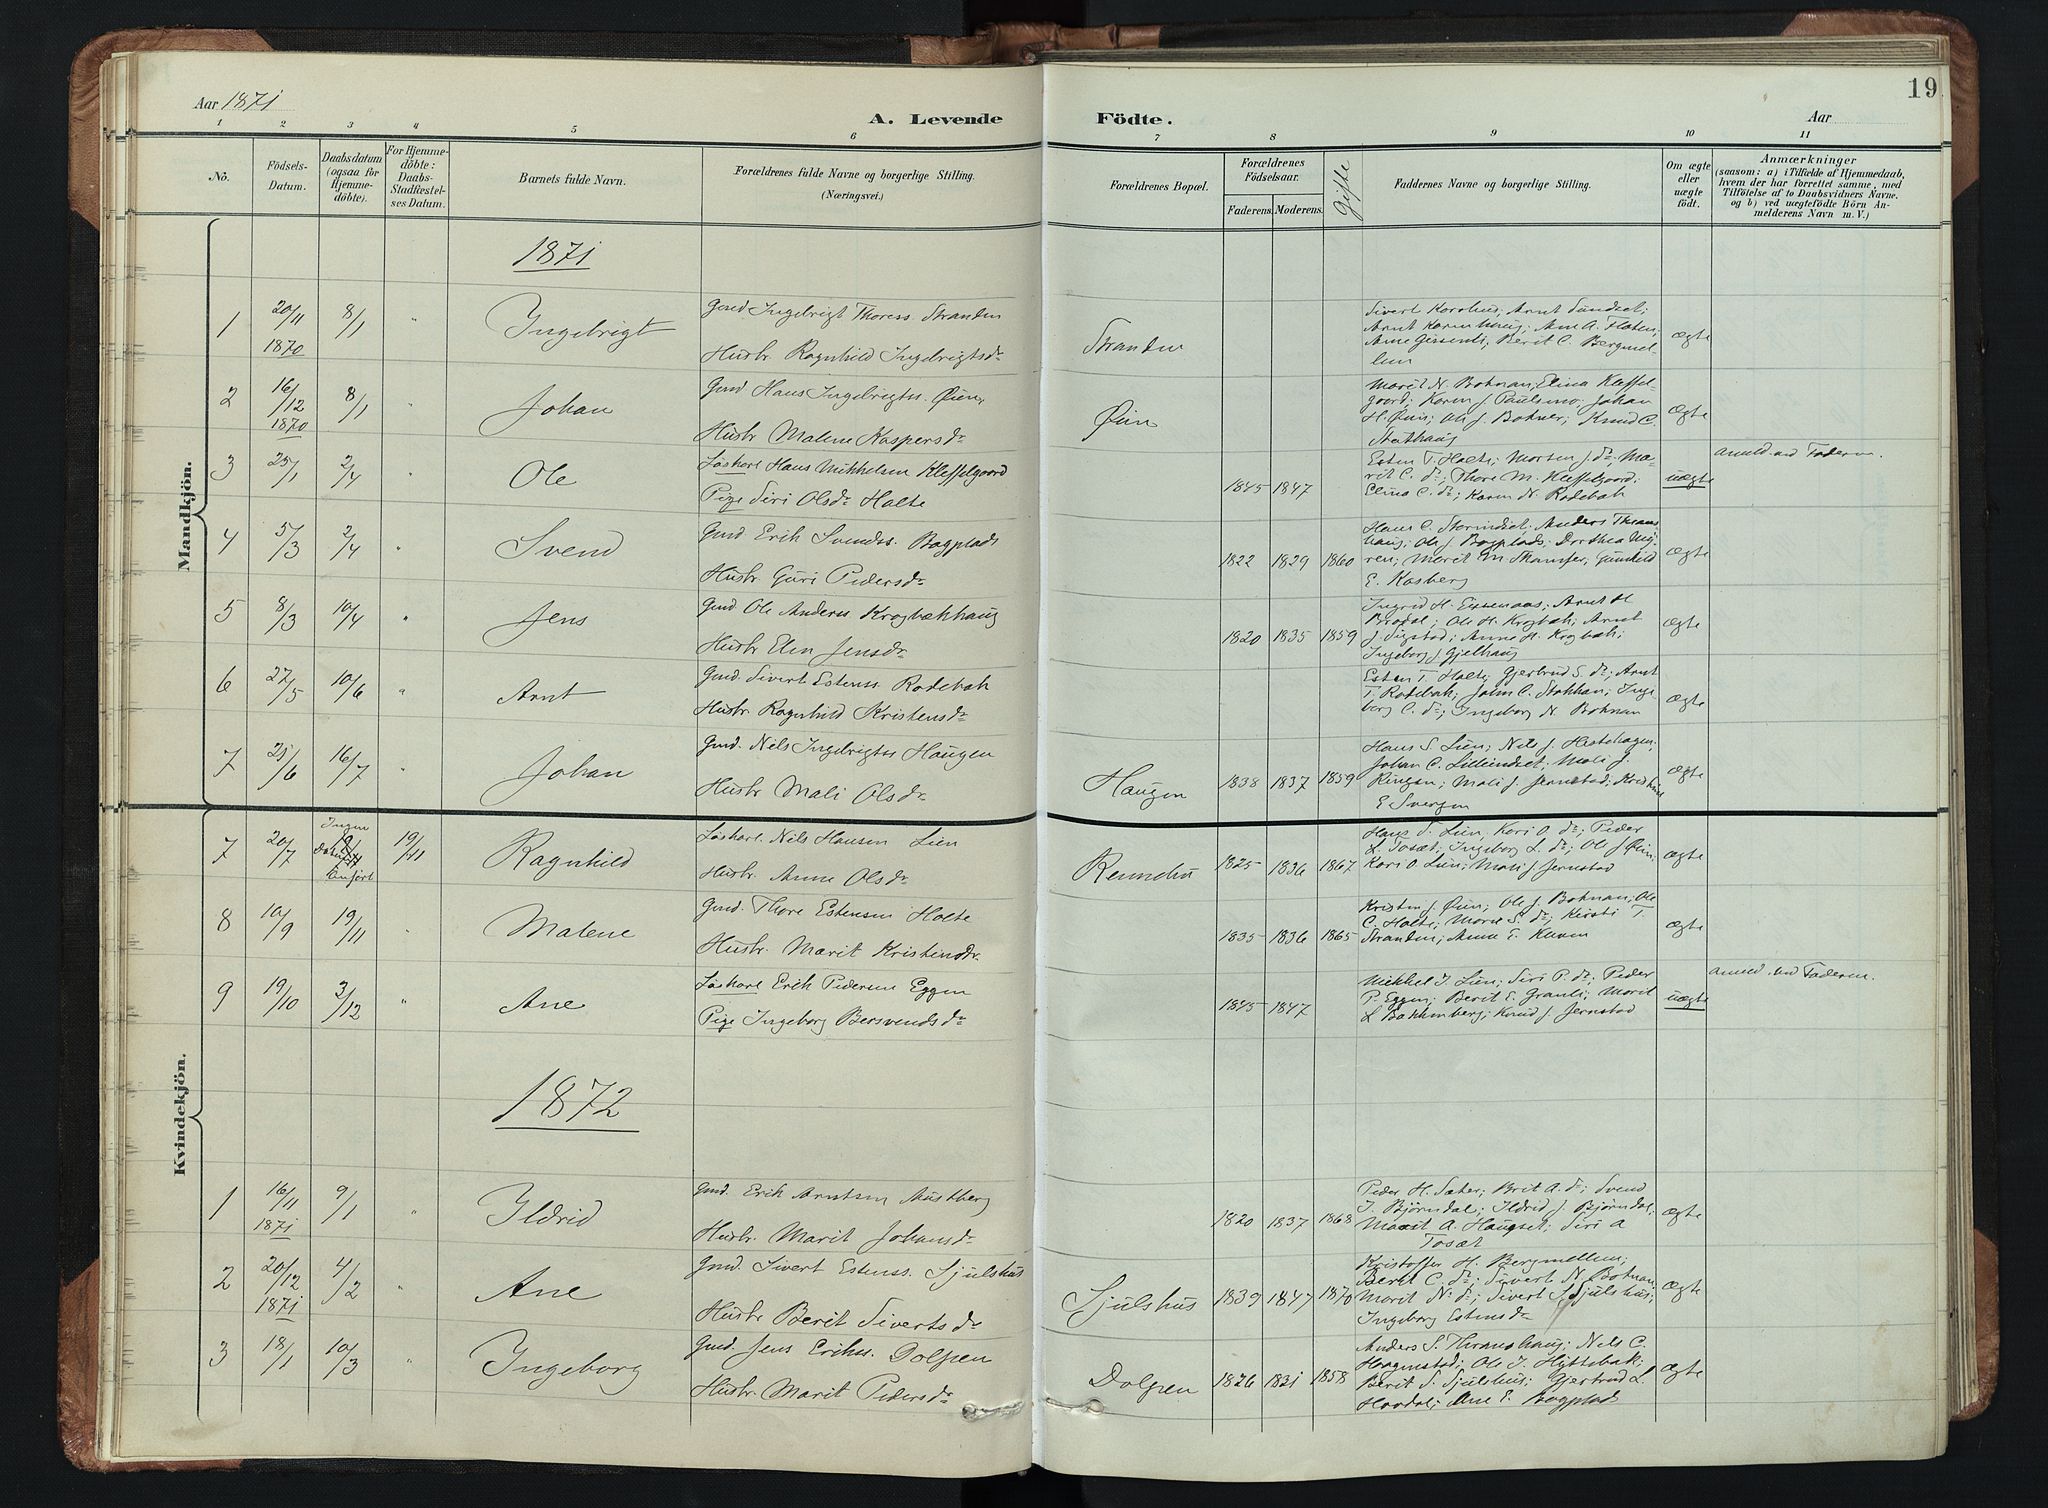 Aar 1871
A. Levende Födte.
Aar
19
1 2 3 4 5 6 7 8 9 10 11
No.
Födsels-Datum.
Daabsdatum (ogsaa for Hjemme-döbte).
For Hjemme-döbte: Daabs-Stadfæstel-ses Datum.
Barnets fulde Navn.
Forældrenes fulde Navne og borgerlige Stilling.
(Næringsvei.)
Forældrenes Bopæl.
Forældrenes Födselsaar.
Faderens. Moderens.
Gifte
Faddernes Navne og borgerlige Stilling.
Om ægte eller uægte födt.
Anmærkninger
(saasom: a) i Tilfælde af Hjemmedaab,
hvem der har forrettet samme, med
Tilföielse af to Daabsvidners Navne.
og b) ved uægtefödte Börn An-
melderens Navn m. V.)
Mandkjön.
1871
1 20/11 1870 8/1 " Ingebrigt
Gmd Ingebrigt Thoress. Stranden
Hustr. Ragnhild Ingebrigtsdr
Stranden
Sivert Korshus; Arnt Sundset;
Arnt Karenhaug; Ane A. Floten;
Berit C. Bergmel-
lem
ægte
2 16/12 1870 8/1 " Johan
Gmd Hans Ingebrigtss. Øien
Hustr Malene Kaspersdr
Øien
Marit N. Botnan; Elina Kleffel-
gaard; Karen J. Paulsmo; Johan
H. Øien; Ole J. Botner; Knud C.
Stuthaug
ægte
3 25/1 2/4 " Ole
Løskarl Hans Mikkelsen Kleffelgaard
Pige Siri Olsdr Holte
1845 1847
Esten T. Holte; Morten J. dr; Ma-
rit C. dr; Thore M. Kleffelgaard;
Elina C. dr; Karen N. Rodebak
uægte
anmeld. ved Faderen.
4 5/3 2/4 " Svend
Gmd Erik Svendss. Bagplads
Hustr. Guri Pedersdr
1822 1829 1860
Hans C. Storindset; Anders Thrans-
haug; Ole J. Bagplads; Dorthea
ren; Marit M. Skamfer; Gunhild
E. Kosberg
ægte
5 8/3 10/4 " Jens
Gmd Ole Anderss Krogbækhaug
Hustr Elen Jensdr
1820 1835 1859
Ingrid H. Estenaas; Arnt H
Brodal; Ole H. Krogbæk; Arnt
J. Sigstad; Anne H. Krogbæk;
Ingeborg J. Gjelhaug
ægte
6 27/5 10/6 " Arnt
Gmd. Sivert Estenss. Rodebak
Hustr. Ragnhild Kristensdr
Esten T. Holte; Gjertrud S. dr; Arnt
T. Rodebak; John C. Stokkan; Inge-
borg C. dr; Ingeborg N. Botnan
ægte
7 25/6 16/7 " Johan
Gmd. Nils Ingebrigtss Haugen
Hustr Mali Olsdr
Haugen
1838 1837 1859
Hans S. Lien; Nils J. Hestehagen;
Johan C. Lilleindset; Mali J.
Ringen; Mali J. Jernstad;
E Svergen
ægte
Kvindekjön.
7 20/7 Ingen Datum anført 19/11 Ragnhild
Løskarl Nils Hansen Lien
Hustr. Anne Olsdr
1825 1836 1867
Hans S. Lien, Kari O. dr; Peder
L Tosæt; Ingeborg L. dr; Ole J Øien;
Kari O Lien; Mali J. Jernstad
ægte
8 10/9 19/11 " Malene
Gmd. Thore Estensen Holte
Hustr. Marit Kristensdr.
1835 1836 1865
Kristen J Øien; Ole J. Botnan; Ole
C. Holte; Marit S. dr; Kirsti T.
Stranden; Anne T. Kleven
ægte
9 19/10 3/12 " Ane
Løskarl Erik Pedersen Eggen
Pige Ingeborg Bersvendsdr
1845 1847
Mikkel I. Lien; Siri P. dr; Peder
P. Eggen; Berit E. Granli; Marit
L Bakkenberg; Knud J. Jernstad
uægte
anmeld. ved Faderen.
1872
1 16/11 1871 9/1 " Ildrid
Gmd. Erik Arntsen Austberg
Hustr. Marit Johansdr
1820 1837 1868
Peder H. Sæter; Brit A. dr; Svend
I. Bjørndal; Ildrid J. Bjørndal;
Marit A. Haugset; Siri A
Tosæt
ægte
2 20/12 1871 4/2 " Ane
Gmd. Sivert Estenss. Sjulshus
Hustr Berit Sivertsdr
Sjulshus
1839 1847 1870
Kristoffer H. Bergmellem;
Berit C. dr; Sivert N. Botnan;
Marit N. dr; Sivert S. Sjulshus;
Ingeborg Estensdr
ægte
3 18/1 10/3 " Ingeborg
Gmd. Jens Erikss. Dolpen
Hustr. Marit Pedersdr
Dolpen
1826 1821 1858
Anders S. Thranshaug; Nils C.
Haagenstad; Ole I. Hyttebak;
Berit S. Sjulshus; Gjertrud L
Hovdal; Ane E. Bagplads
ægte